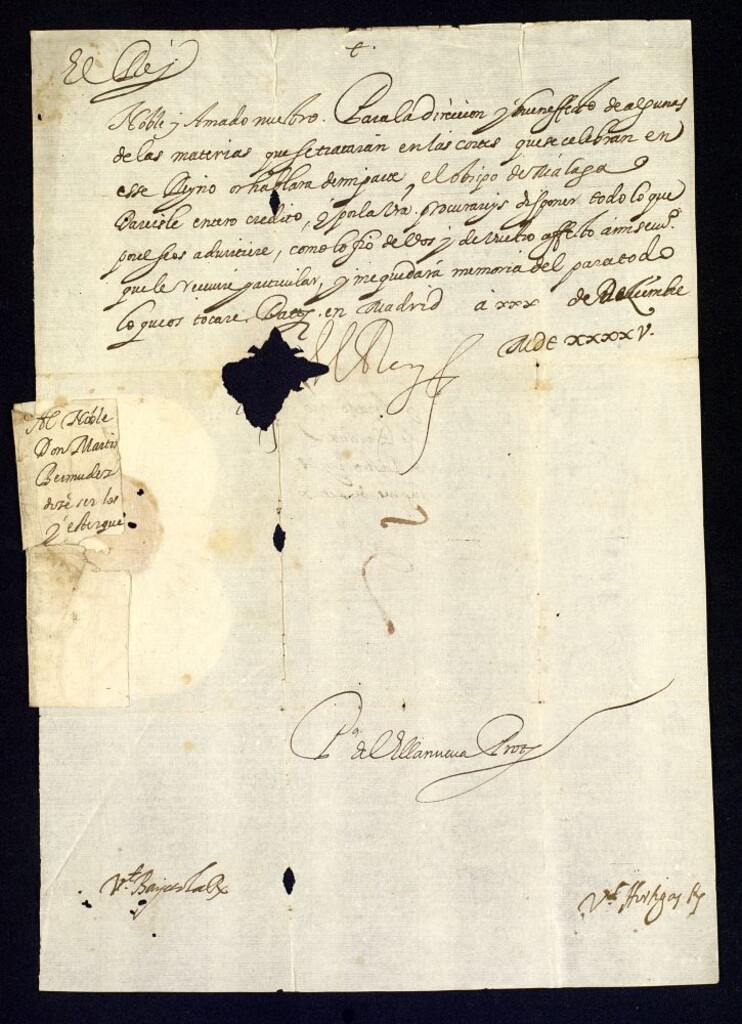 +
El Rey
Noble y Amado nuestro. Para la direccion y buen effecto de algunas
de las materias que se trataran en las cortes que se celebran en
esse Reyno os hablara de mi parte el obispo de Malaga
Dareisle entero credito, y por la Vra. procurareys disponer todo lo que
por el seos advirtiere, como lo fio de Vos y de Vuestro affecto a mi seru.º
que le reciuire particular, y me quedará memoria del para todo
lo que os tocare. Dat. en Madrid a xxx de Deziembre
MDC XXXXV.
Yo el Rey
Al Noble
Don Martin
Bermudez
P.º de Villanueva Prot.
V.t
V.t